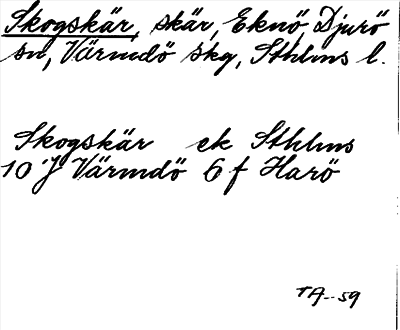 Skogskär, skär, Eknö, Djurö
sn, Värmdö skg, Sthlms l.
Skogskär ek Sthlms
10 J Värmdö 6 f Harö
TA-59